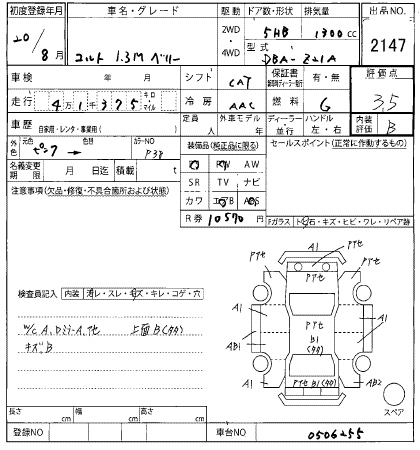 初度登録年月 車名・グレード 駆動 ドア数・形状 排気量 出品NO.
20/8月 コルト 1.3M ベリー 2WD・4WD 5HB 1300cc 2147
型式 DBA-Z21A
車検 年 月 シフト CAT 保証書 有・無 評価点
走行 4万1千375 キロ・マイル 冷房 AAC 燃料 G 3.5
車歴 自家用・レンタ・事業用( ) 定員 人 外車モデル 年 ディーラー・並行 ハンドル 左・右 内装評価 B
外色 元色 ピンク → 色替 カラーNO P38 装備品(純正品に限る) セールスポイント(正常に作動するもの)
名義変更期限 月 日迄 積載 t PS PW AW
注意事項(欠品・修復・不具合箇所および状態) SR TV ナビ
カワ エアB ABS
R券 10570円 Fガラス トビ石・キズ・ヒビ・ワレ・リペア跡
検査員記入 内装 汚レ・スレ・キズ・キレ・コゲ・穴
W/C A、Dミラ-A、他 上面B(タタ)
キズB
A1 PTセ
PTセ PTセ
A1 A1
PTセ
B1
(タタ)
AB1 A1
PTセ B1(タタ)
A1 AB2
スペア
長さ cm 幅 cm 高さ cm
登録NO 車台NO 0506255